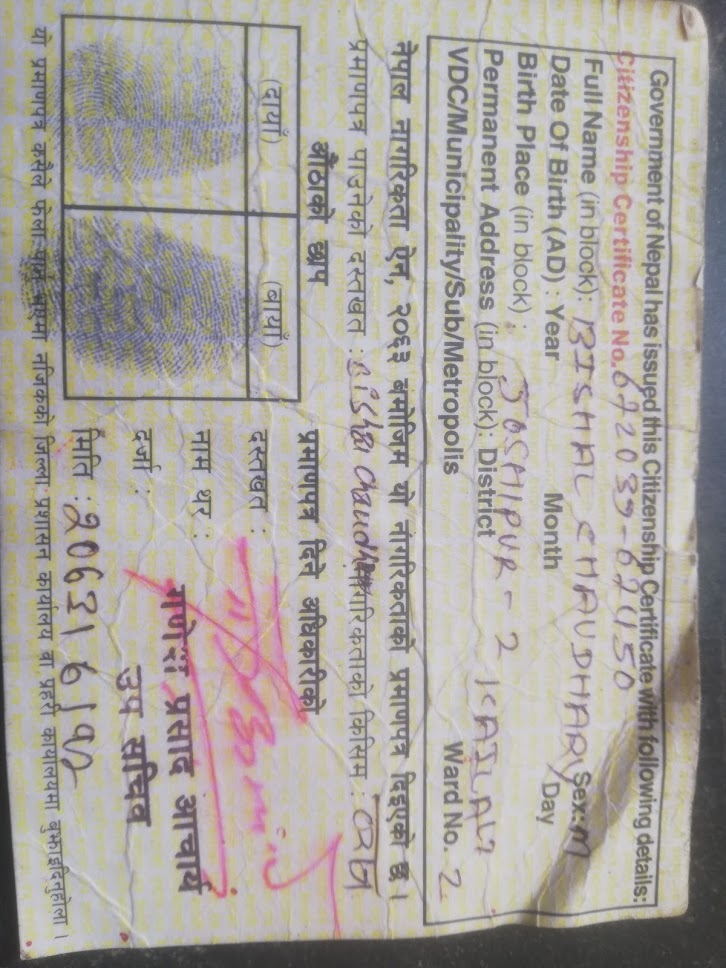 Government of Nepal has issued this Citizenship Certificate with following details:
Citizenship Certificate No. 672039-67450
Full Name (in block): BISHAL CHAUDHARY Sex: M
Date Of Birth (AD) : Year Month Day
Birth Place (in block) :
JOSHIPUR - 2 KAILALI
Permanent Address (in block): District
VDC/Municipality/Sub/Metropolis Ward No. 2
नेपाल नागरिकता ऐन, २०६३ बमोजिम यो नागरिकताको प्रमाणपत्र दिइएको छ ।
प्रमाणपत्र पाउनेको दस्तखत : नागरिकताको किसिम
औंठाको छाप
(दायाँ) (बायाँ)
प्रमाणपत्र दिने अधिकारीको
दस्तखत :
नाम थर : गणेश प्रसाद आचार्य
दर्जा : उप सचिव
मिति :
यो प्रमाणपत्र कसैले फेला पारे नजिकको जिल्ला प्रशासन कार्यालय वा प्रहरी कार्यालयमा बुझाइदिनुहोला ।